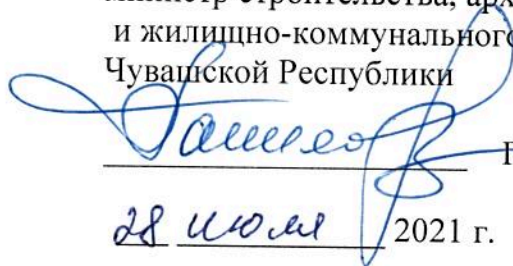 министр строительства, арх
и жилищно-коммунального
Чувашской Республики
28 июля 2021 г.